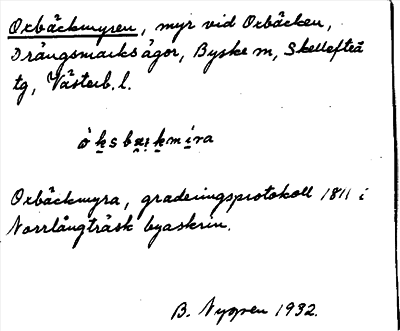 Oxbäckmyren, myr vid Oxbäcken,
Drängsmarks ägor, Byske m, Skellefteå
tg, Västerb. l.
ò ḵs bæꞓḵmíra
Oxbäckmyra, graderingsprotokoll 1811 i
Norrlångträsk byaskrin.
B. Nygren 1932.